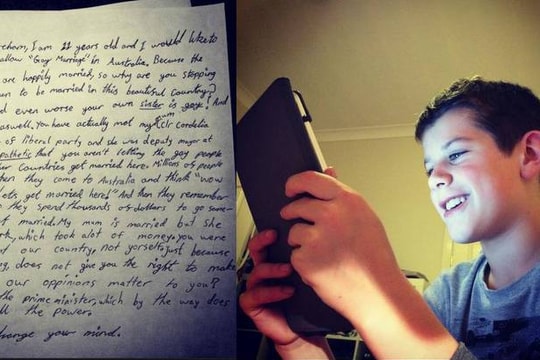 ereham, I am 11 years old and I would like to
allow "Gay Marriage" in Australia. Because the
are happily married, so why are you stopping
en to be married in this beautiful country?
d even worse your own sister is gay! And
aswell. You have actually met my mum Clr Cordelia
of liberal party and she was deputy mayor at
pathetic that you aren't letting the gay people
Countries get married here. Millions of people
hen they come to Australia and think "wow
lets get married here!" And then they remember
they spend thousands of dollars to go some-
t married. My mum is married but she
rk, which took alot of money. You were
t our country, not yorself, just because
g, does not give you the right to make
our oppinions matter to you?
he prime minister, which by the way does
ll the power.
change your mind.